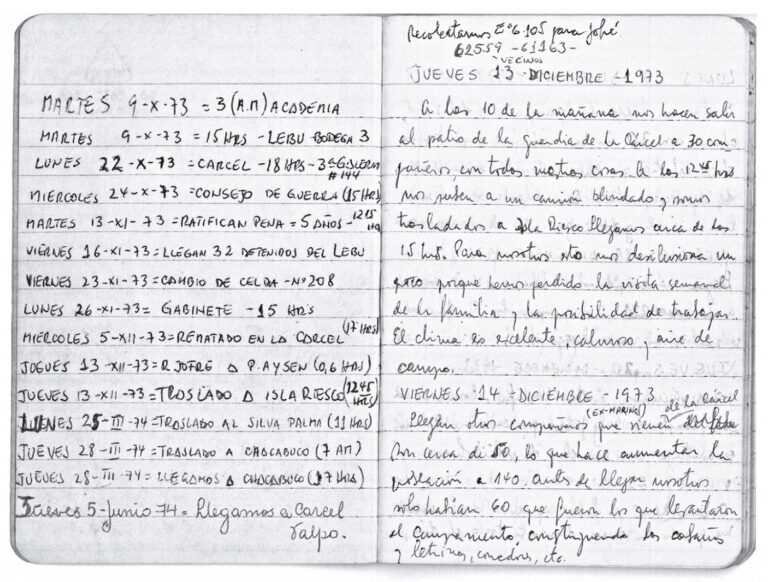 MARTES 9-X-73 = 3 (A.M) ACADEMIA
MARTES 9-X-73 = 15 HRS - LEBU BODEGA 3
LUNES 22-X-73 = CARCEL - 18 HRS - 3ª GALERIA
#144
MIERCOLES 24-X-73 = CONSEJO DE GUERRA (15 HRS)
MARTES 13-XI-73 = RATIFICAN PENA = 5 AÑOS - 1215 HRS
VIERNES 16-XI-73 = LLEGAN 32 DETENIDOS DEL LEBU
VIERNES 23-XI-73 = CAMBIO DE CELDA - Nº 208
LUNES 26-XI-73 = GABINETE - 15 HRS
MIERCOLES 5-XII-73 = REMATADO EN LA CARCEL (17 HRS)
JUEVES 13-XII-73 = R. JOFRE A P. AYSEN (0,6 HRS)
JUEVES 13-XII-73 = TRASLADO A ISLA RIESCO (1245 HRS)
LUNES 25-III-74 = TRASLADO AL SILVA PALMA (11 HRS)
JUEVES 28-III-74 = TRASLADO A CHACABUCO (7 AM)
JUEVES 28-III-74 = LLEGAMOS A CHACABUCO (17 HRS)
Jueves 5-Junio 74 = Llegamos a Carcel
Valpo.
Recolectamos Eº 6.105 para Jofré
62559 - 61163 -
VECINOS
JUEVES 13 - DICIEMBRE - 1973
A las 10 de la mañana nos hacen salir
al patio de la guardia de la Cárcel a 30 com
pañeros, con todas nuestras cosas. A las 1245 hrs
nos suben a un camión blindado y somos
trasladados a Isla Riesco. Llegamos cerca de las
15 hrs. Para nosotros esto nos desilusiona un
poco porque hemos perdido la visita semanal
de la familia y la posibilidad de trabajar.
El clima es excelente, caluroso y aire de
campo.
VIERNES 14 - DICIEMBRE - 1973
(EX-MARINOS) de la Cárcel
Llegan otros compañeros que vienen
Son cerca de 50, lo que hace aumentar la
población a 140. antes de llegar nosotros
solo habían 60 que fueron los que levantaron
el Campamento, construyendo las cabañas
y letrinas, comedores, etc.